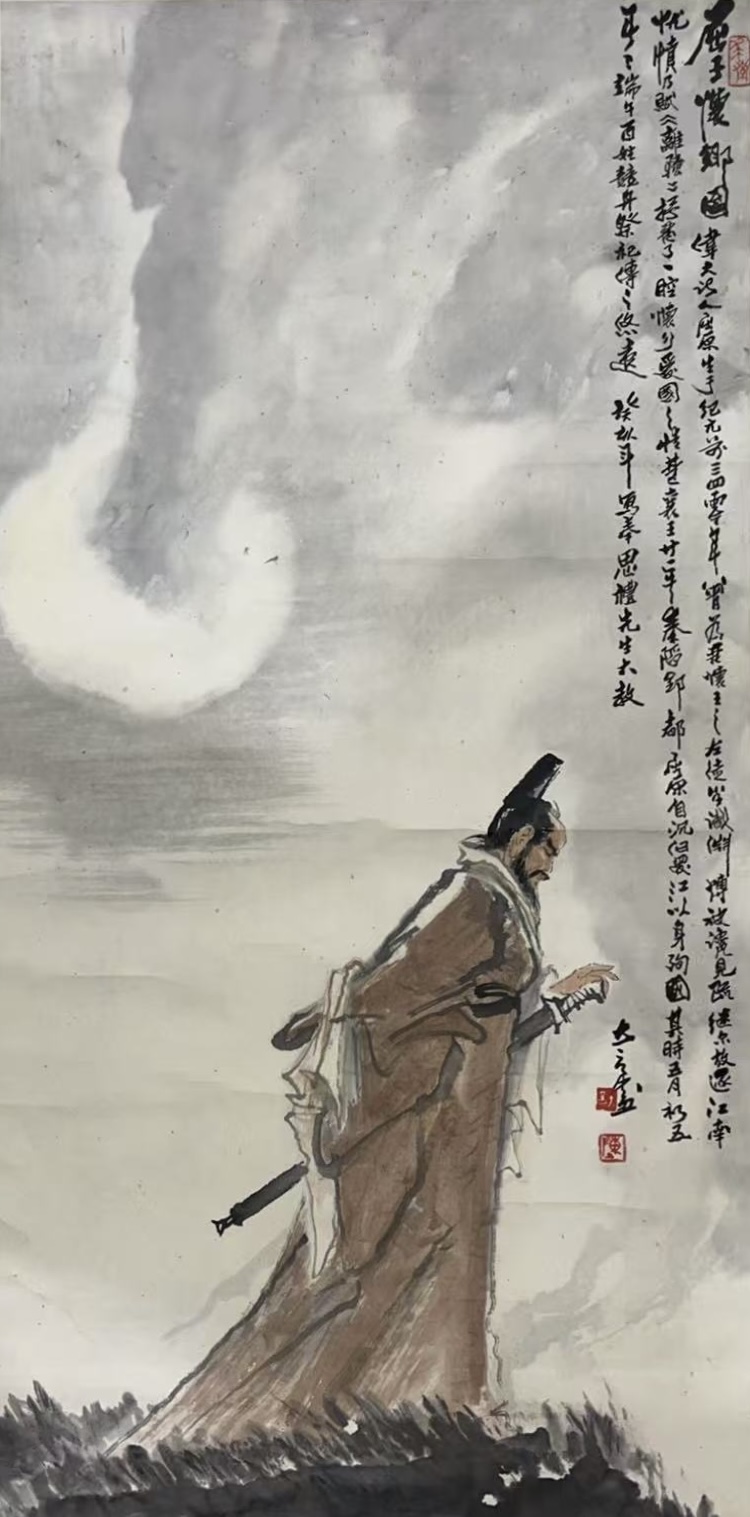 屈子懷鄉图 偉大诗人屈原生于纪元前三四零年 曾为楚懷王之左徒 学識渊博 被讒見疏 继尔放逐江南
忧憤乃赋《離騷》 抒發了一腔懷鄉爱國之情 楚襄王廿一年 秦陷郢都 屈原自沉汨羅江以身殉國 其時五月初五
年年端午百姓競舟祭祀 傳之悠遠 癸亥年 寫奉思禮先生大教